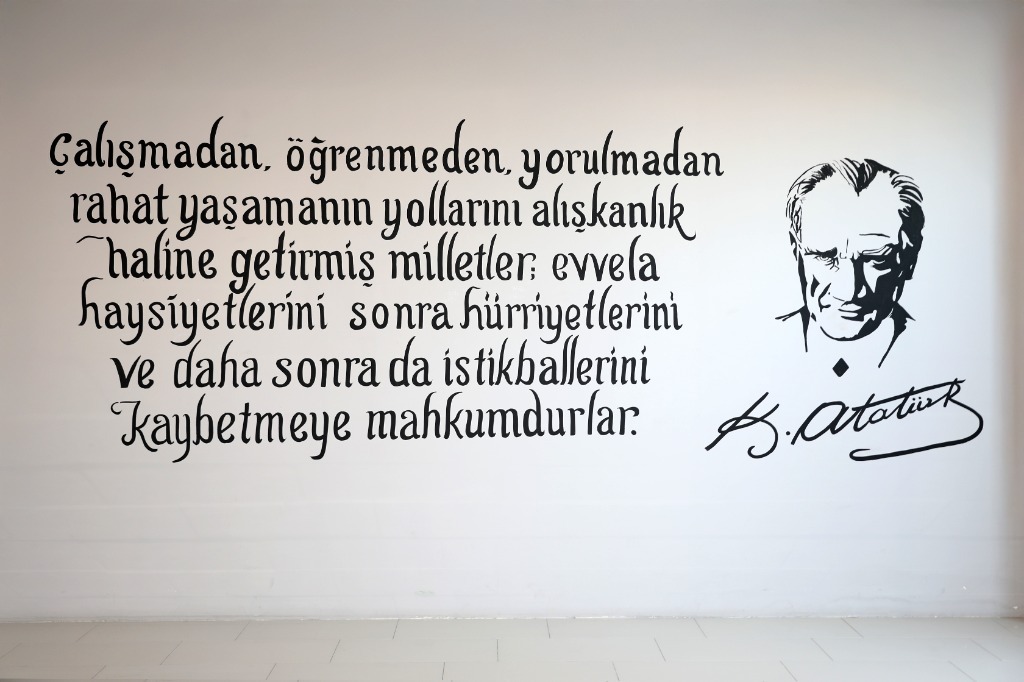 Çalışmadan, öğrenmeden, yorulmadan
rahat yaşamanın yollarını alışkanlık
haline getirmiş milletler; evvela
haysiyetlerini sonra hürriyetlerini
ve daha sonra da istikballerini
kaybetmeye mahkumdurlar.
K. Atatürk